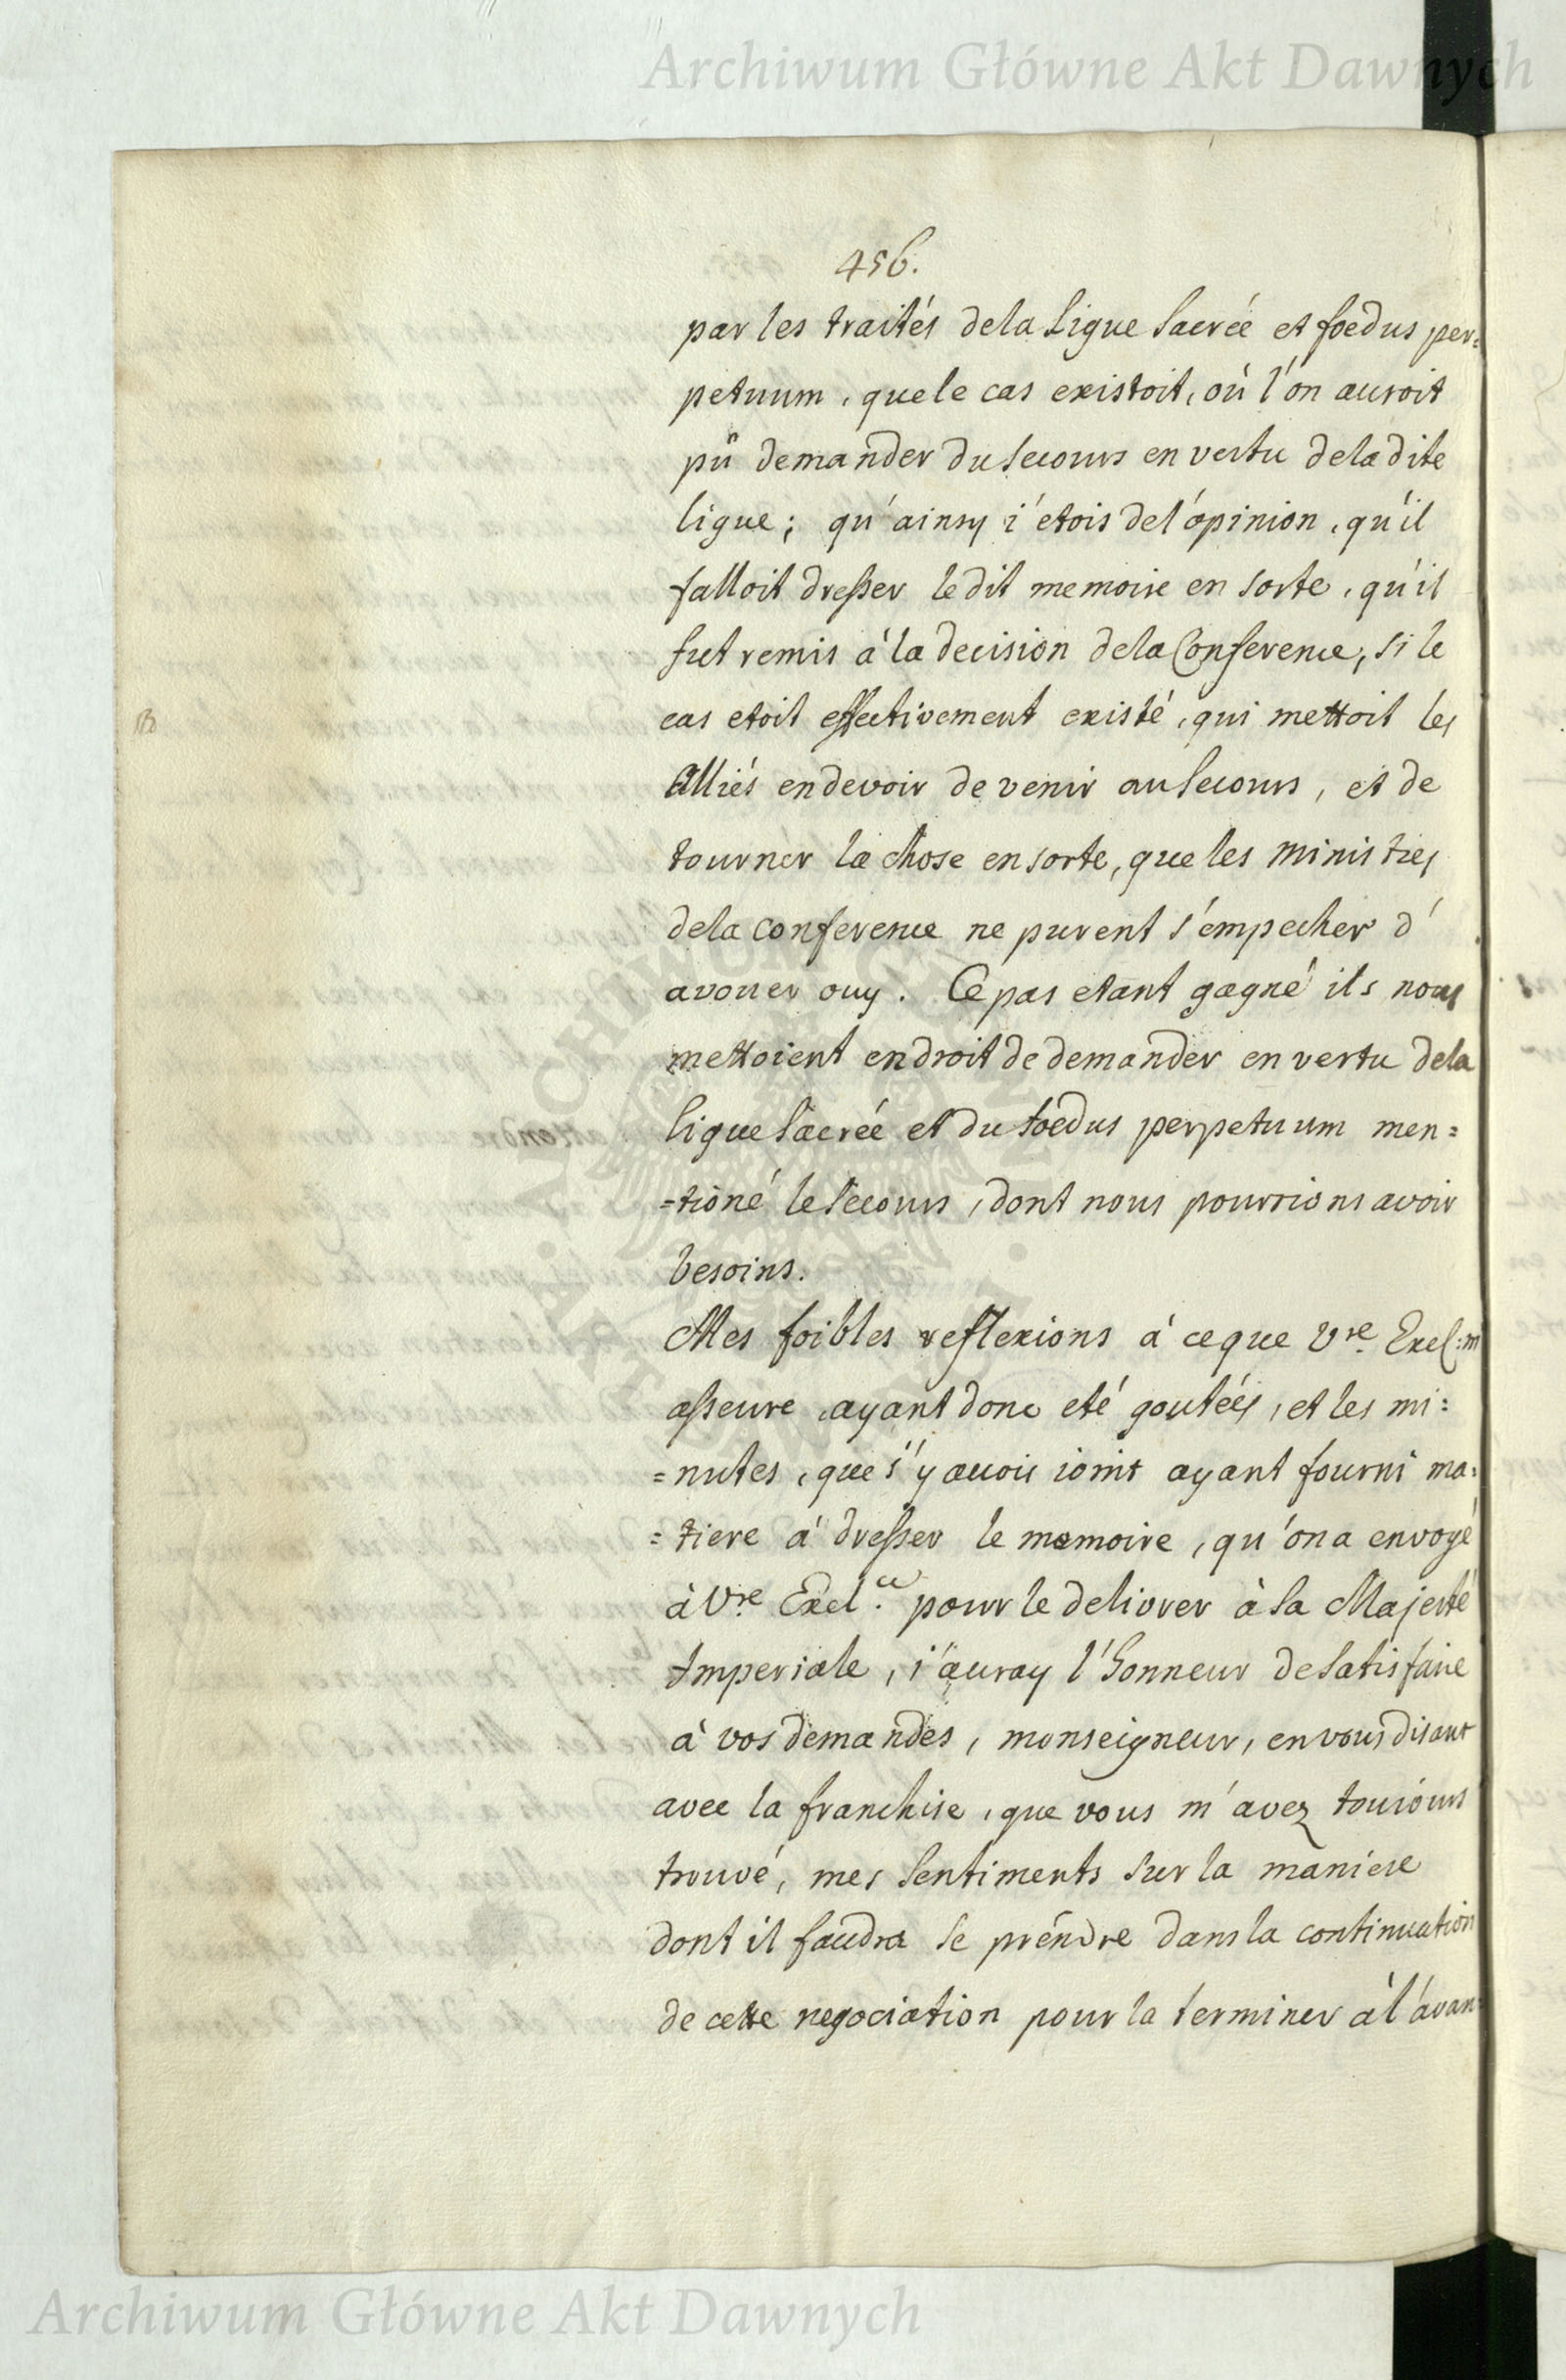 Archiwum Główne Akt Dawnych
456.
par les traités dela Ligue Sacrée et foedus per=
petuum, quele cas existoit, où l'on auroit
pû demander du Secours en vertu deladite
ligue; qu'ainsy i'etois del'opinion, qu'il
falloit dresser ledit memoire en sorte, qu'il
fut remis à la decision dela Conference, si le
cas etoit effectivement existé, qui mettoit les
Alliés endevoir de venir au Secours, et de
tourner la chose ensorte, que les ministres
dela conference ne purent s'empecher d'
avouer ouy. Cepas etant gagné ils nous
mettoient endroit de demander en vertu dela
ligue Sacrée et du foedus perpetuum men=
=tioné le Secours, dont nous pourrions avoir
besoins.
Mes foibles reflexions à ceque Vre Exel: m'
asseure, ayant donc eté goutées, et les mi=
=nutes, que i'y avois ioint ayant fourni ma=
=tiere à dresser le memoire, qu'on a envoyé
à Vre Excl.ce pour le delivrer à Sa Majesté
Imperiale, i'auray l'honneur de Satisfaire
à vos demandes, monseigneur, en vous disant
avec la franchise, que vous m'avez tousiours
trouvé, mes Sentiments Sur la maniere
dont il faudra se prendre dans la continuation
de cette negociation pour la terminer à l'avan=
Archiwum Główne Akt Dawnych